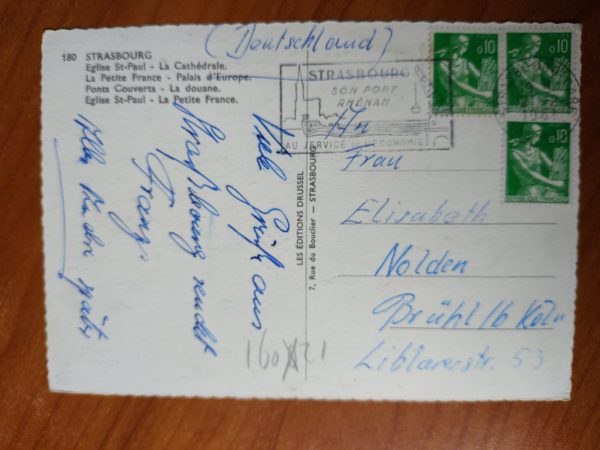 180 STRASBOURG
Eglise St-Paul - La Cathédrale.
La Petite France - Palais d'Europe.
Ponts Couverts - La douane.
Eglise St-Paul - La Petite France.
(Deutschland)
STRASBOURG
SON PORT
RHÉNAN
AU SERVICE DE L'ECONOMIE
0,10
0,10
0,10
Viele Grüße aus
Straßbourg sendet
Franz
Alles Andre später
LES ÉDITIONS DRUSSEL
7, Rue du Bouclier - STRASBOURG
An
Frau
Elisabeth
Nolden
Brühl/b Köln
Liblarerstr. 53